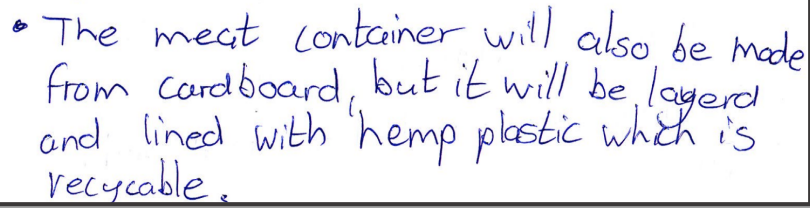 • The meat container will also be made
from cardboard, but it will be layerd
and lined with hemp plastic which is
recycable.